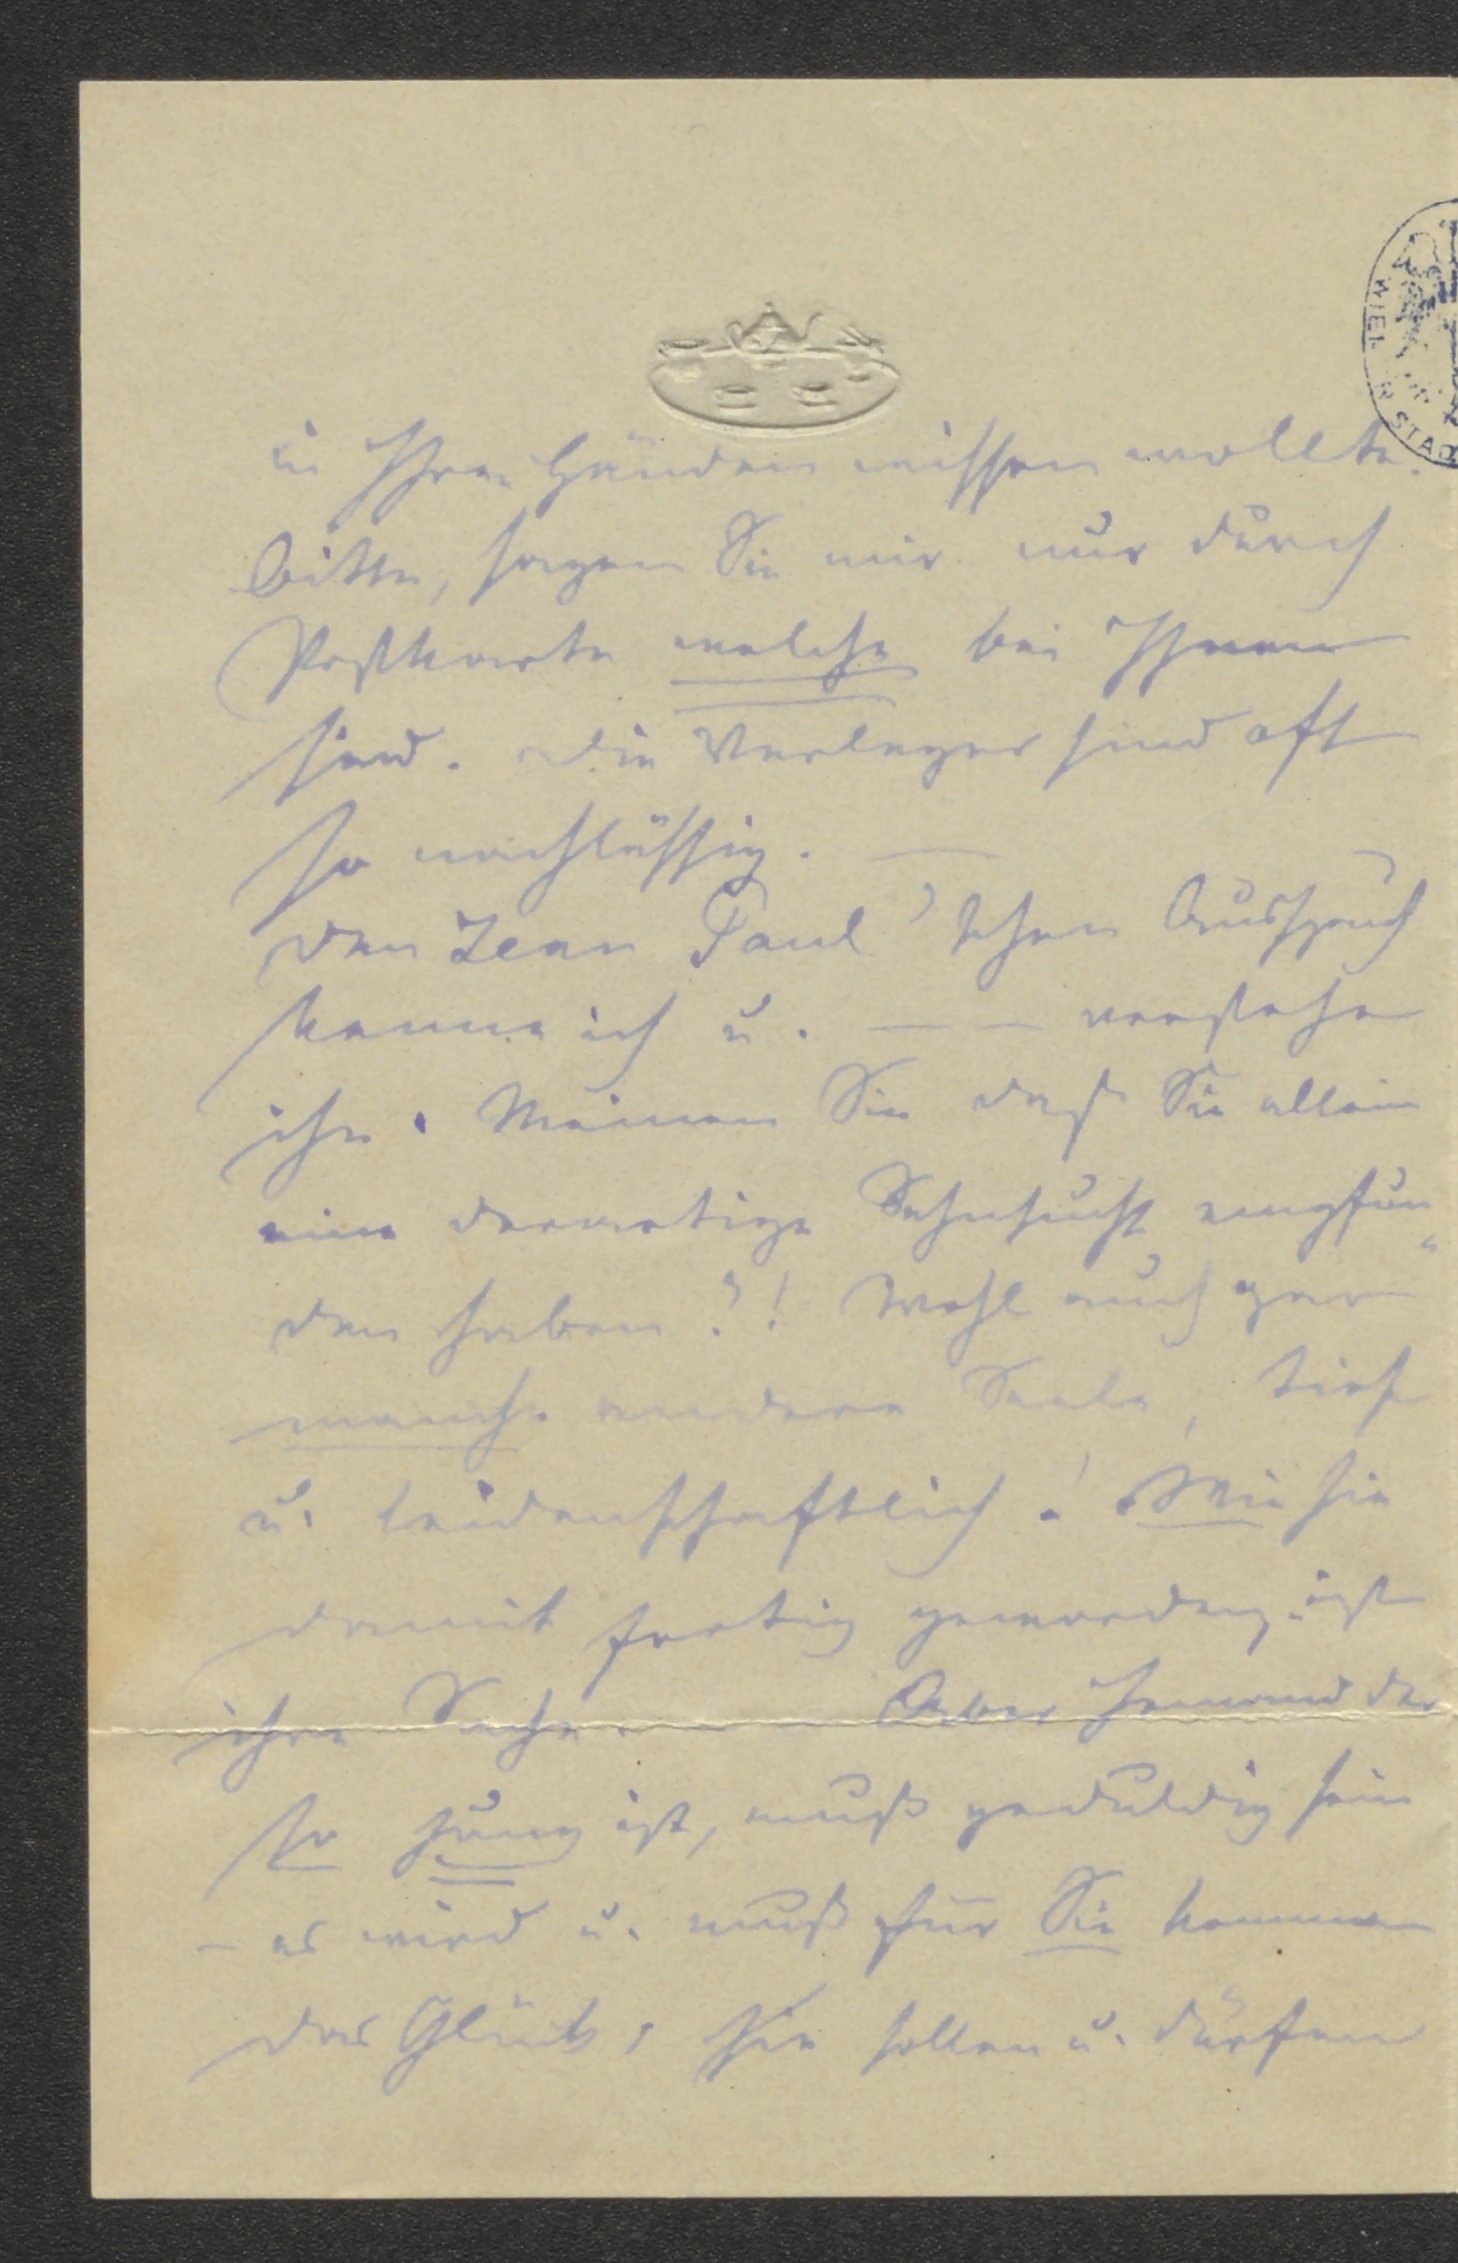 in Ihren Händen wissen wollte.
Bitte, sagen Sie mir nur durch
Postkarte welche bei Ihnen
sind. Die Verleger sind oft
so nachlässig. —
Den Jean Paul'schen Ausspruch
kenne ich u. — — verstehe
ihn. Meinen Sie daß Sie allein
eine derartige Sehnsucht empfun„
den haben?! Wohl auch gar
manche andere Seele, tief
u. leidenschaftlich! Wie sie
damit fertig geworden, ist
ihre Sache. — Aber Jemand der
so jung ist, muß geduldig sein
– es wird u. muß für Sie kommen
das Glück, Sie sollen u. dürfen
STAD